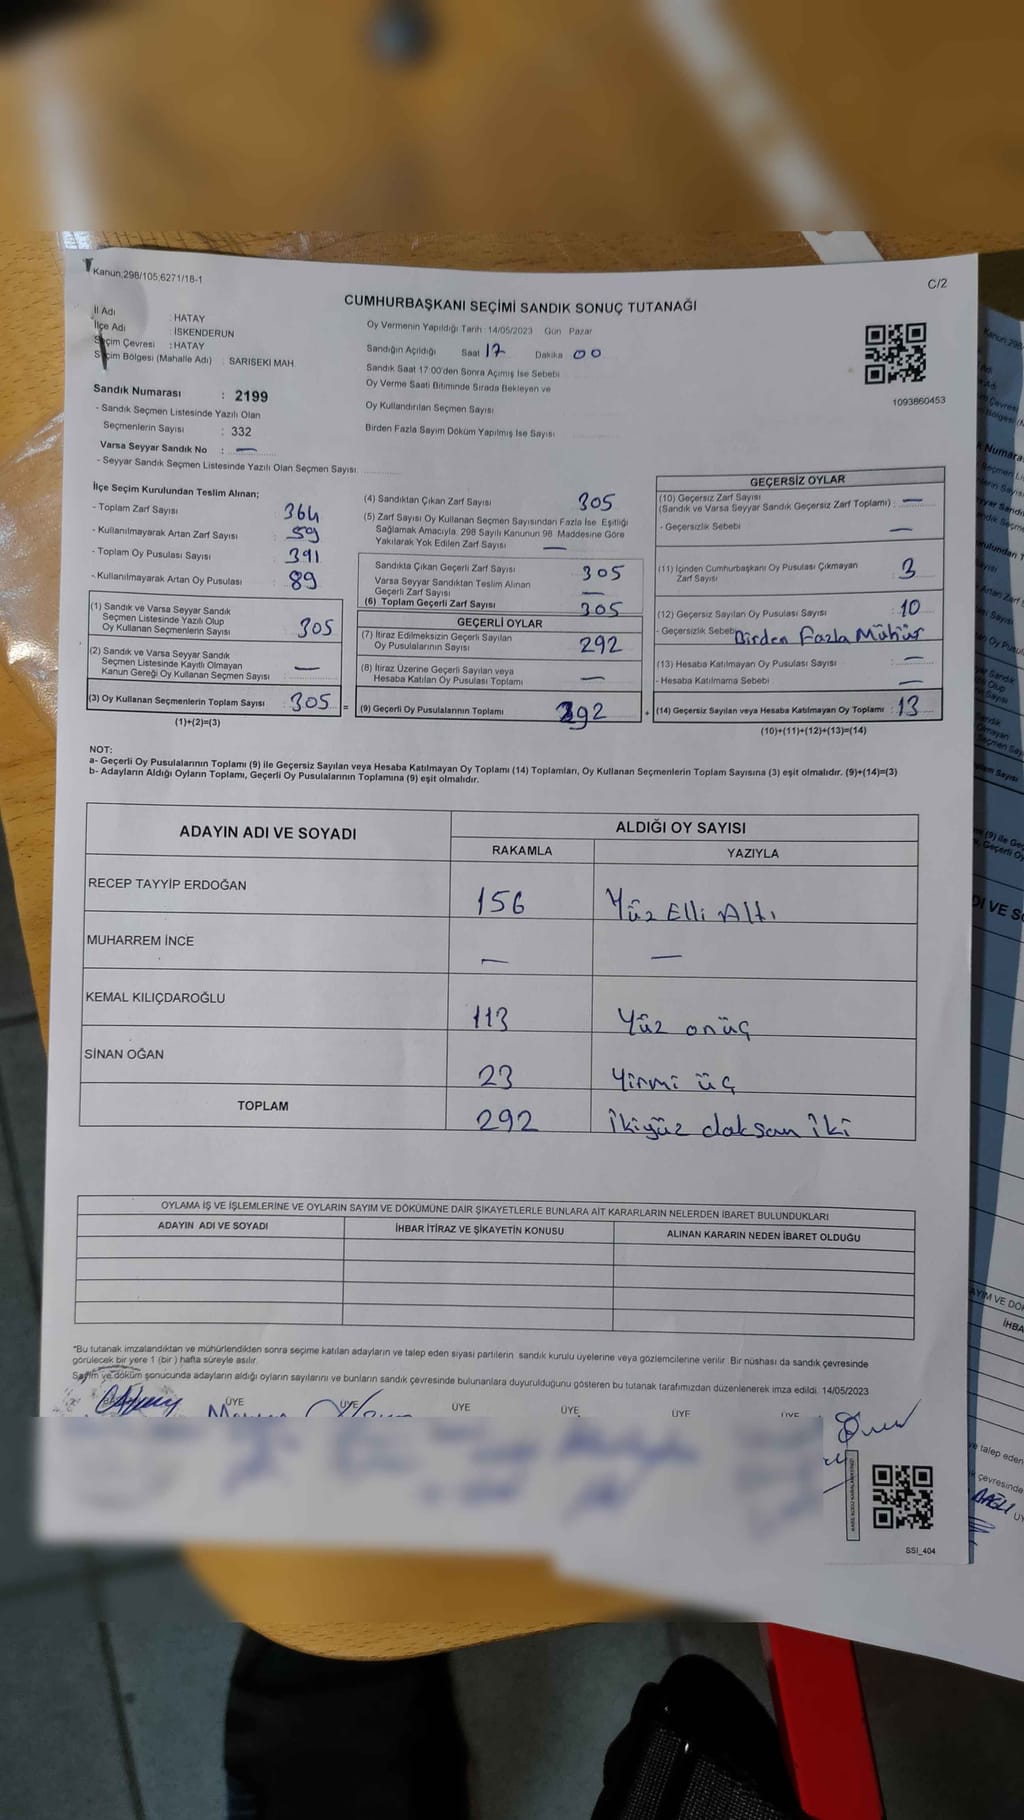 Kanun:298/105,6271/18-1
C/2
CUMHURBAŞKANI SEÇİMİ SANDIK SONUÇ TUTANAĞI
İl Adı : HATAY
İlçe Adı : İSKENDERUN
Seçim Çevresi : HATAY
Seçim Bölgesi (Mahalle Adı) : SARISEKİ MAH
Oy Vermenin Yapıldığı Tarih :14/05/2023 Gün Pazar
Sandığın Açıldığı Saat 17 Dakika 00
Sandık Saat 17:00'den Sonra Açımış İse Sebebi
Oy Verme Saati Bitiminde Sırada Bekleyen ve
Oy Kullandırılan Seçmen Sayısı
Birden Fazla Sayım Döküm Yapılmış İse Sayısı
1093860453
Sandık Numarası : 2199
- Sandık Seçmen Listesinde Yazılı Olan
Seçmenlerin Sayısı : 332
Varsa Seyyar Sandık No : —
- Seyyar Sandık Seçmen Listesinde Yazılı Olan Seçmen Sayısı
İlçe Seçim Kurulundan Teslim Alınan;
- Toplam Zarf Sayısı : 364
- Kullanılmayarak Artan Zarf Sayısı : 59
- Toplam Oy Pusulası Sayısı : 391
- Kullanılmayarak Artan Oy Pusulası : 89
(1) Sandık ve Varsa Seyyar Sandık
Seçmen Listesinde Yazılı Olup
Oy Kullanan Seçmenlerin Sayısı : 305
(2) Sandık ve Varsa Seyyar Sandık
Seçmen Listesinde Kayıtlı Olmayan
Kanun Gereği Oy Kullanan Seçmen Sayısı : —
(3) Oy Kullanan Seçmenlerin Toplam Sayısı : 305 =
(1)+(2)=(3)
(4) Sandıktan Çıkan Zarf Sayısı 305
(5) Zarf Sayısı Oy Kullanan Seçmen Sayısından Fazla İse Eşitliği
Sağlamak Amacıyla, 298 Sayılı Kanunun 98. Maddesine Göre
Yakılarak Yok Edilen Zarf Sayısı —
Sandıkta Çıkan Geçerli Zarf Sayısı : 305
Varsa Seyyar Sandıktan Teslim Alınan
Geçerli Zarf Sayısı : —
(6) Toplam Geçerli Zarf Sayısı : 305
GEÇERLİ OYLAR
(7) İtiraz Edilmeksizin Geçerli Sayılan
Oy Pusulalarının Sayısı : 292
(8) İtiraz Üzerine Geçerli Sayılan veya
Hesaba Katılan Oy Pusulası Toplamı : —
(9) Geçerli Oy Pusulalarının Toplamı : 292 +
GEÇERSİZ OYLAR
(10) Geçersiz Zarf Sayısı
(Sandık ve Varsa Seyyar Sandık Geçersiz Zarf Toplamı) : —
- Geçersizlik Sebebi : —
(11) İçinden Cumhurbaşkanı Oy Pusulası Çıkmayan
Zarf Sayısı : 3
(12) Geçersiz Sayılan Oy Pusulası Sayısı : 10
- Geçersizlik Sebebi Birden Fazla Mühür
(13) Hesaba Katılmayan Oy Pusulası Sayısı : —
- Hesaba Katılmama Sebebi : —
(14) Geçersiz Sayılan veya Hesaba Katılmayan Oy Toplamı : 13
(10)+(11)+(12)+(13)=(14)
NOT:
a- Geçerli Oy Pusulalarının Toplamı (9) ile Geçersiz Sayılan veya Hesaba Katılmayan Oy Toplamı (14) Toplamları, Oy Kullanan Seçmenlerin Toplam Sayısına (3) eşit olmalıdır. (9)+(14)=(3)
b- Adayların Aldığı Oyların Toplamı, Geçerli Oy Pusulalarının Toplamına (9) eşit olmalıdır.
ADAYIN ADI VE SOYADI
ALDIĞI OY SAYISI
RAKAMLA YAZIYLA
RECEP TAYYİP ERDOĞAN 156 Yüz Elli Altı
MUHARREM İNCE — —
KEMAL KILIÇDAROĞLU 113 Yüz onüç
SİNAN OĞAN 23 Yirmi üç
TOPLAM 292 İkiyüz doksan İki
OYLAMA İŞ VE İŞLEMLERİNE VE OYLARIN SAYIM VE DÖKÜMÜNE DAİR ŞİKAYETLERLE BUNLARA AİT KARARLARIN NELERDEN İBARET BULUNDUKLARI
ADAYIN ADI VE SOYADI İHBAR İTİRAZ VE ŞİKAYETİN KONUSU ALINAN KARARIN NEDEN İBARET OLDUĞU
*Bu tutanak imzalandıktan ve mühürlendikten sonra seçime katılan adayların ve talep eden siyasi partilerin sandık kurulu üyelerine veya gözlemcilerine verilir. Bir nüshası da sandık çevresinde
görülecek bir yere 1 (bir) hafta süreyle asılır.
Sayım ve döküm sonucunda adayların aldığı oyların sayılarını ve bunların sandık çevresinde bulunanlara duyurulduğunu gösteren bu tutanak tarafımızdan düzenlenerek imza edildi. 14/05/2023
ÜYE ÜYE ÜYE ÜYE ÜYE ÜYE
SSI_404